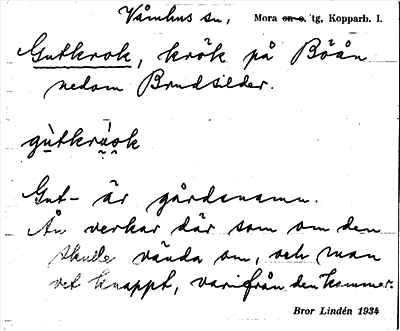 Våmhus sn, Mora sn o. tg, Kopparb. l.
Gutkrok, krök på Böån
nedom Brudsilder.
gùtkrå̀ok
Gut- är gårdsnamn.
Ån verkar där som om den
skulle vända om, och man
vet knappt, varifrån den kommer.
Bror Lindén 1934